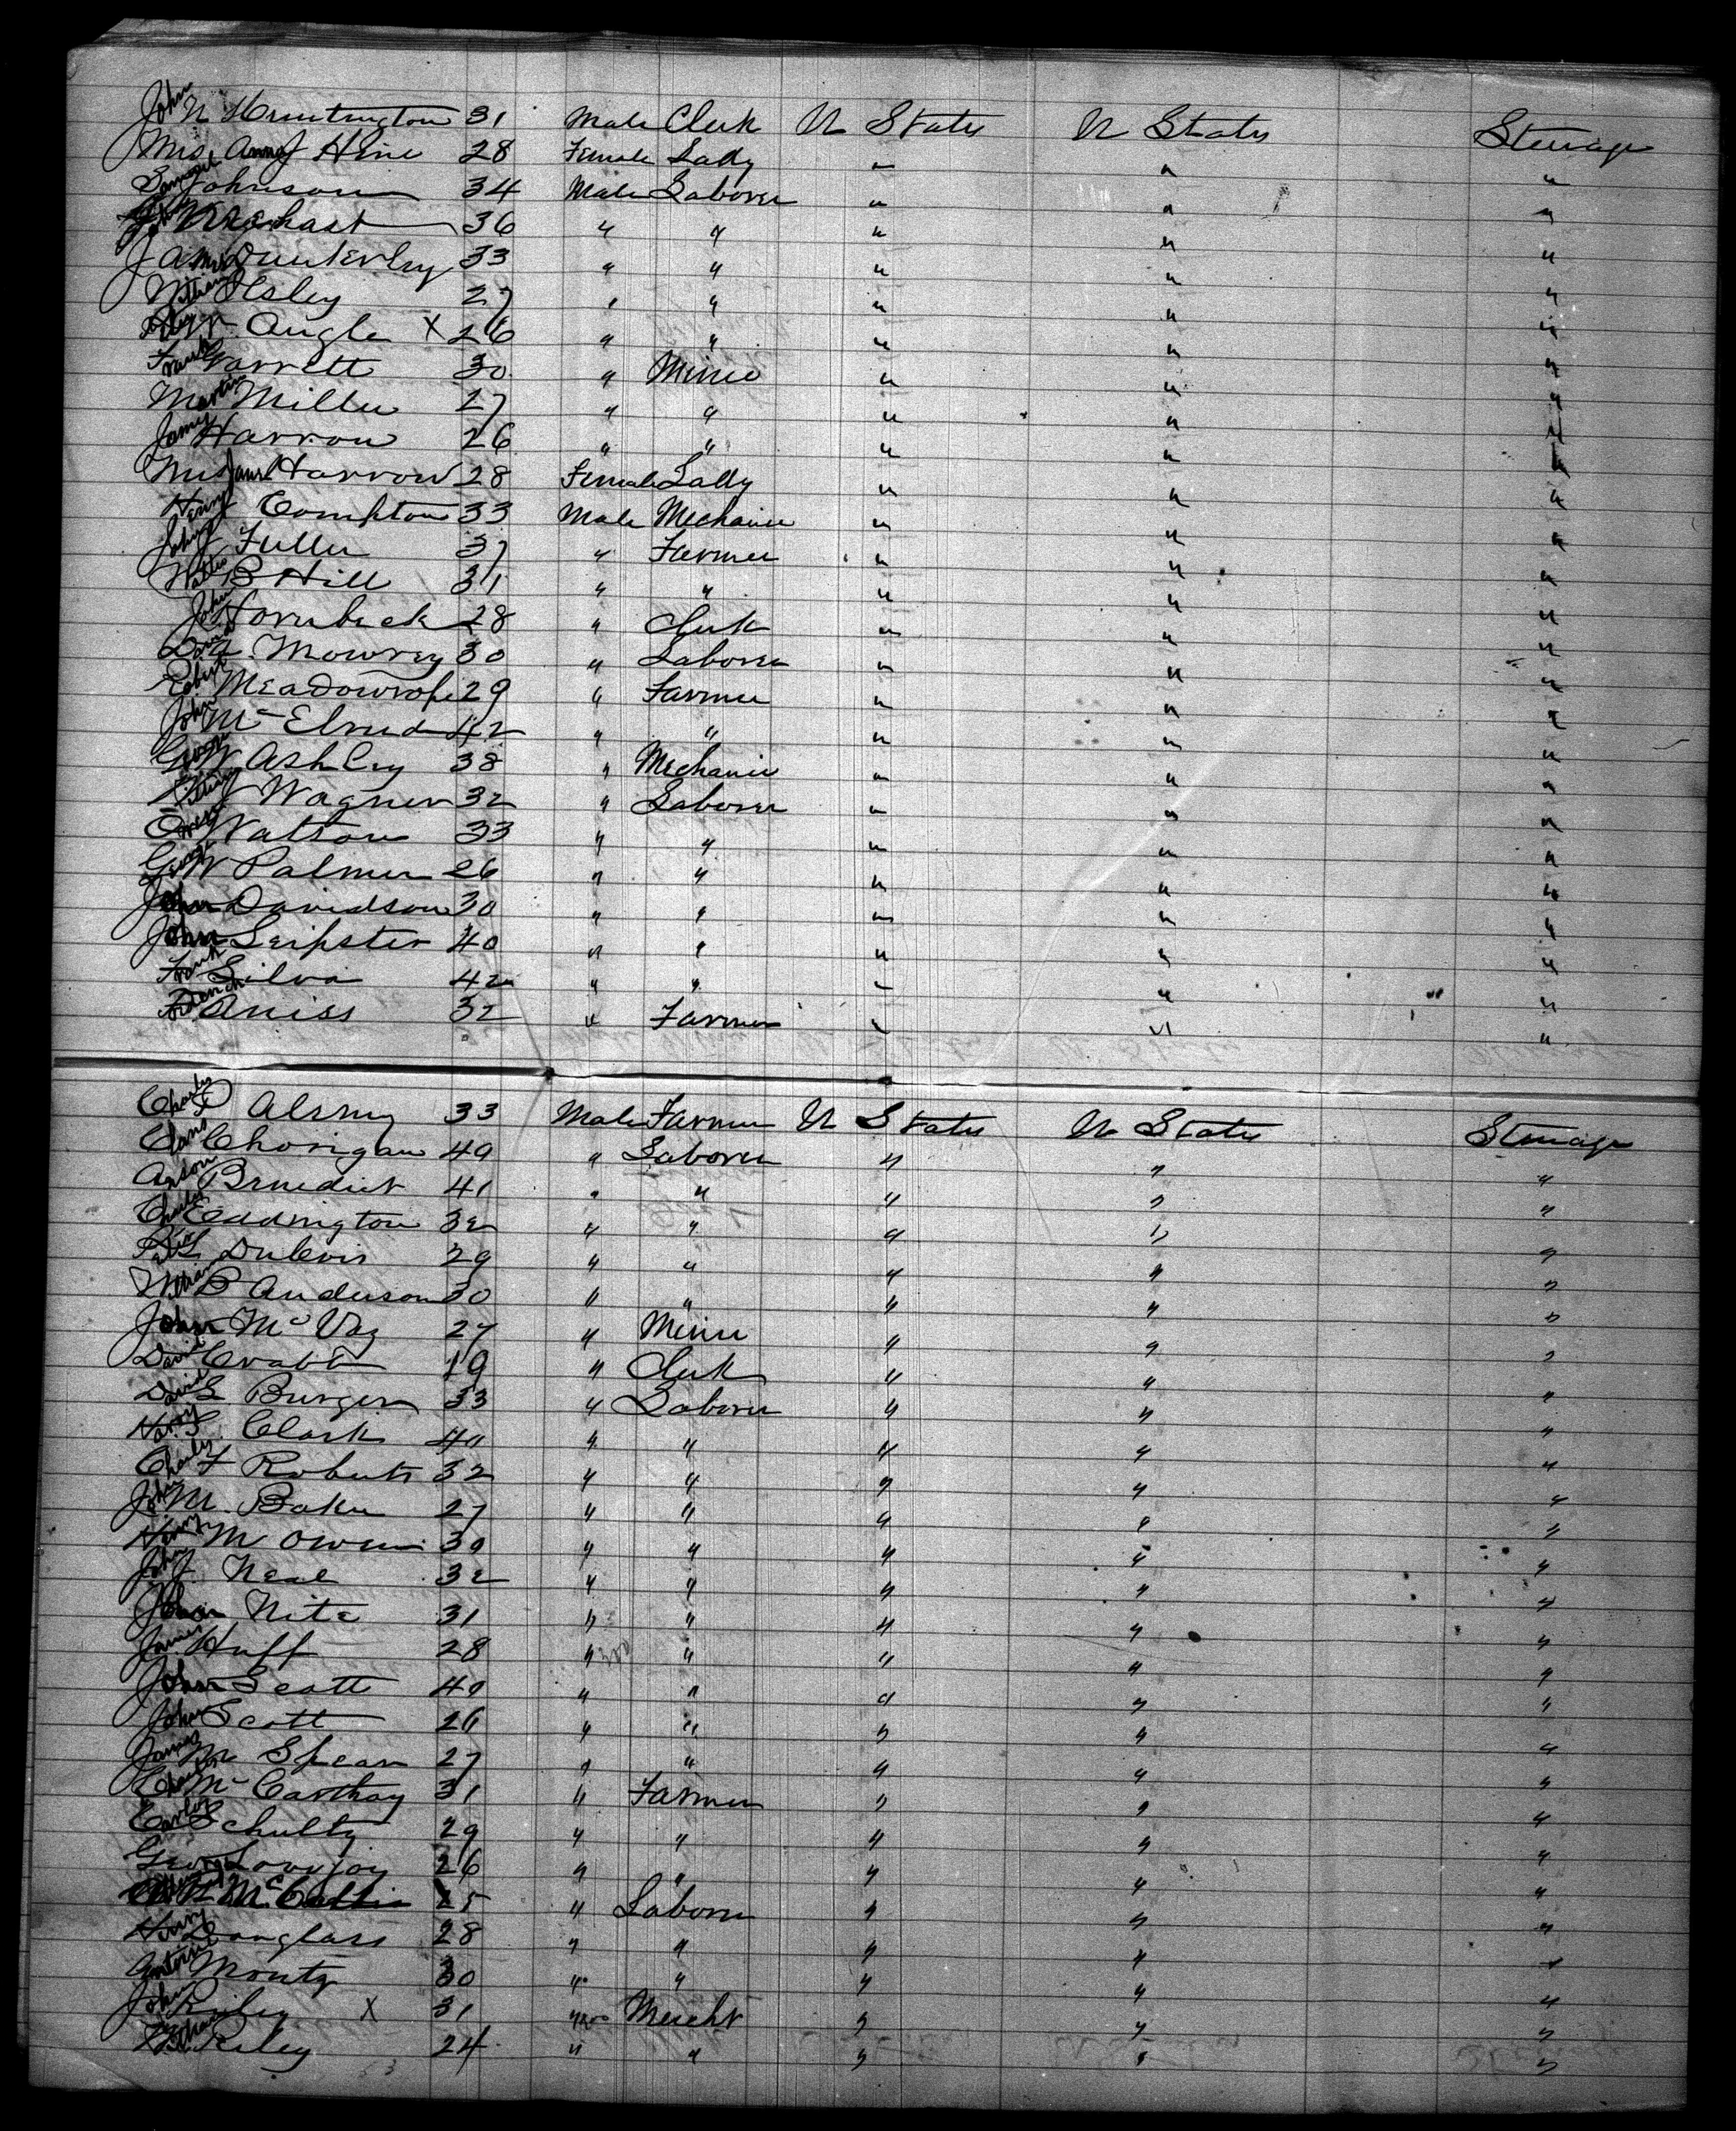 John N Huntington 31 Male Clerk U States U States Steerage
Mrs Anna J Hine 28 Female Lady " " "
Samuel Johnson 34 Male Laborer " " "
36 " " " " "
James Dunkerley 33 " " " " "
William Ilsley 27 " " " " "
Angle X 26 " " " " "
Frank Garrett 30 " Miner " " "
Martin Miller 27 " " " " "
James Harrow 26 " " " " "
Mrs Jane Harrow 28 Female Lady " " "
Henry Compton 33 Male Mechanic " " "
John J Fuller 37 " Farmer " " "
B Hill 31 " " " " "
John Hornbeck 28 " Clerk " " "
David Mowrey 30 " Laborer " " "
Robert Meadowrope 29 " Farmer " " "
John McElrud 42 " " " " "
George W Ashley 38 " Mechanic " " "
William J Wagner 32 " Laborer " " "
Owen Watson 33 " " " " "
George W Palmer 26 " " " " "
John Davidson 30 " " " " "
John Leipster 40 " " " " "
Frank Silva 42 " " " " "
Aniss 32 " Farmer " " "
Charles D Almy 33 Male Farmer U States U States Steerage
Chorigan 40 " Laborer " " "
Anson Benedict 41 " " " " "
Charles Eddington 32 " " " " "
L Dulevis 29 " " " " "
William P Anderson 30 " " " " "
John McVay 27 " Miner " " "
David Crabb 19 " Clerk " " "
David L Burger 33 " Laborer " " "
Harry L Clark 40 " " " " "
Charles F Roberts 32 " " " " "
John M Baker 27 " " " " "
Henry M Owen 39 " " " " "
John J Neal 32 " " " " "
John Nite 31 " " " " "
James Huff 28 " " " " "
John Scott 40 " " " " "
John Scott 26 " " " " "
James M Spear 27 " " " " "
Charles McCarthay 31 " Farmer " " "
Carlos Schultz 29 " " " " "
George Lovejoy 26 " " " " "
McCallis 25 " Laborer " " "
Henry Douglass 28 " " " " "
Antoine Montz 30 " " " " "
John Riley X 31 " Mercht " " "
Riley 24 " " " " "